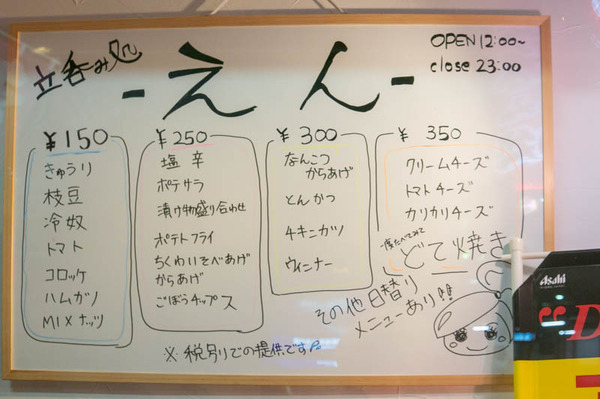 立呑み処
-えん-
OPEN 12:00~
close 23:00
¥150
きゅうり
枝豆
冷奴
トマト
コロッケ
ハムカツ
MIXナッツ
¥250
塩辛
ポテサラ
漬け物盛り合わせ
ポテトフライ
ちくわいそべあげ
からあげ
ごぼうチップス
¥300
なんこつ
からあげ
とんかつ
チキンカツ
ウィンナー
¥350
クリームチーズ
トマトチーズ
カリカリチーズ
一度たべてみて
どて焼き
その他日替り
メニューあり!!
※税別りでの提供です
Asahi
"D